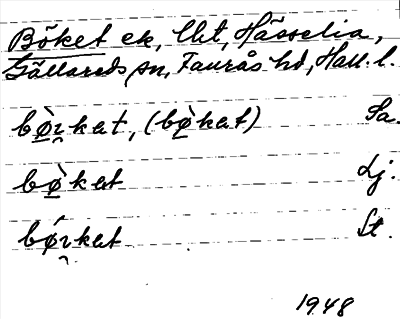 Böket ek, lht, Hässelia,
Gällareds sn, Faurås hd, Hall. l.
bø̀rkat, (bø̀kat) Sa.
bø̀kat Lj.
bǿrkat St.
1948